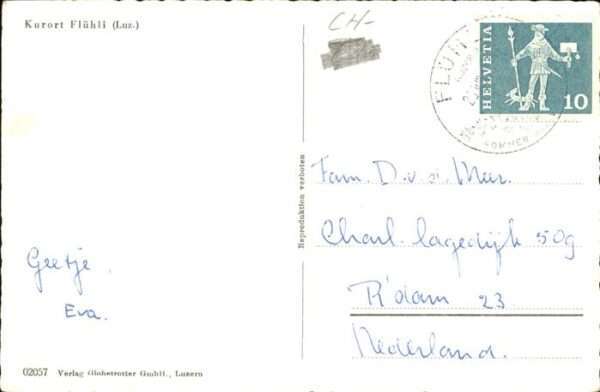 Kurort Flühli (Luz.)
CH-
FLÜHLI
SOMMER
HELVETIA
10
Reproduktion verboten
Fam. D. v. d. Meer.
Charl. lagedijk 50g
R'dam 23
Nederland.
Geetje.
Eva.
02057 Verlag Globetrotter GmbH., Luzern